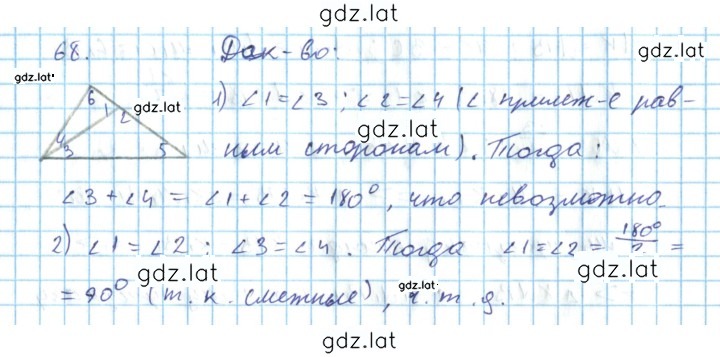 gdz.lat
68. Док-во:
gdz.lat
gdz.lat
6 1 2 gdz.lat
4 3 5
1) ∠1=∠3; ∠2=∠4 (∠ прилеж-е рав-
gdz.lat
ным сторонам). Тогда:
∠3+∠4 = ∠1+∠2 = 180°, что невозможно.
2) ∠1=∠2; ∠3=∠4. Тогда ∠1=∠2= 180°/2 =
gdz.lat gdz.lat
= 90° (т.к. смежные), ч.т.д.
gdz.lat
gdz.lat